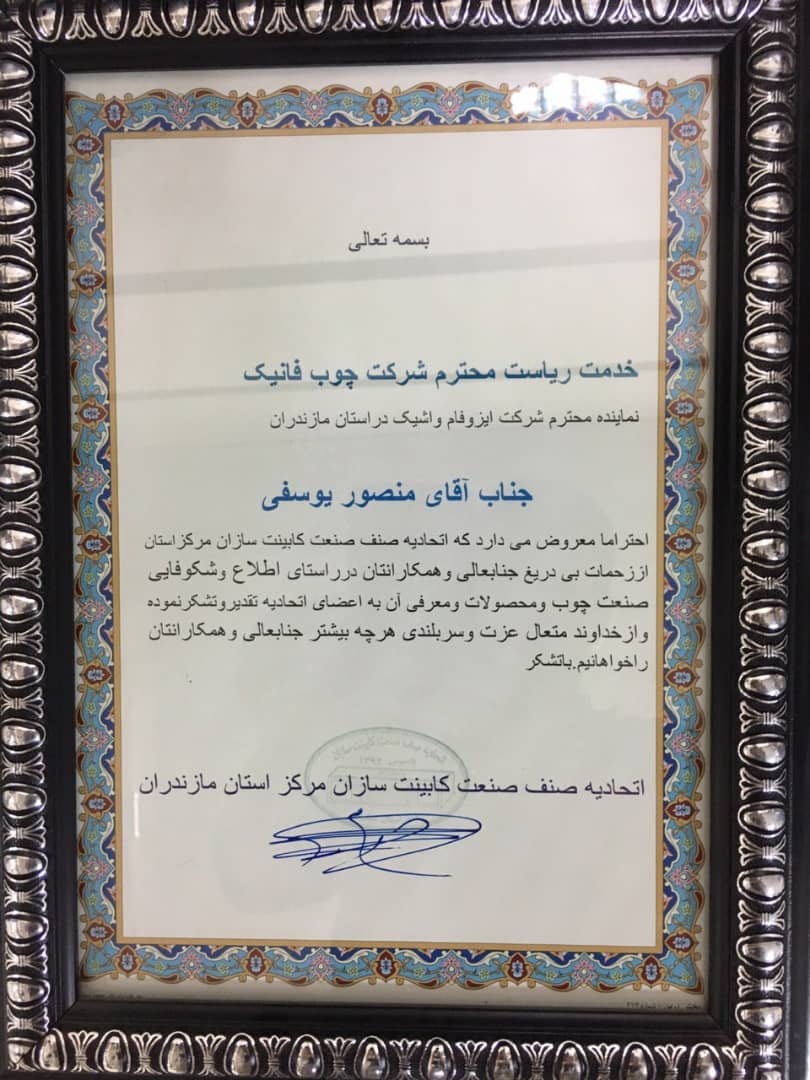 بسمه تعالی
خدمت ریاست محترم شرکت چوب فانیک
نماینده محترم شرکت ایزوفام واشیک دراستان مازندران
جناب آقای منصور یوسفی
احتراما معروض می دارد که اتحادیه صنف صنعت کابینت سازان مرکزاستان
اززحمات بی دریغ جنابعالی وهمکارانتان درراستای اطلاع وشکوفایی
صنعت چوب ومحصولات ومعرفی آن به اعضای اتحادیه تقدیروتشکرنموده
وازخداوند متعال عزت وسربلندی هرچه بیشتر جنابعالی وهمکارانتان
راخواهانیم.باتشکر
اتحادیه صنف صنعت کابینت سازان
۱۳۹۲
اتحادیه صنف صنعت کابینت سازان مرکز استان مازندران